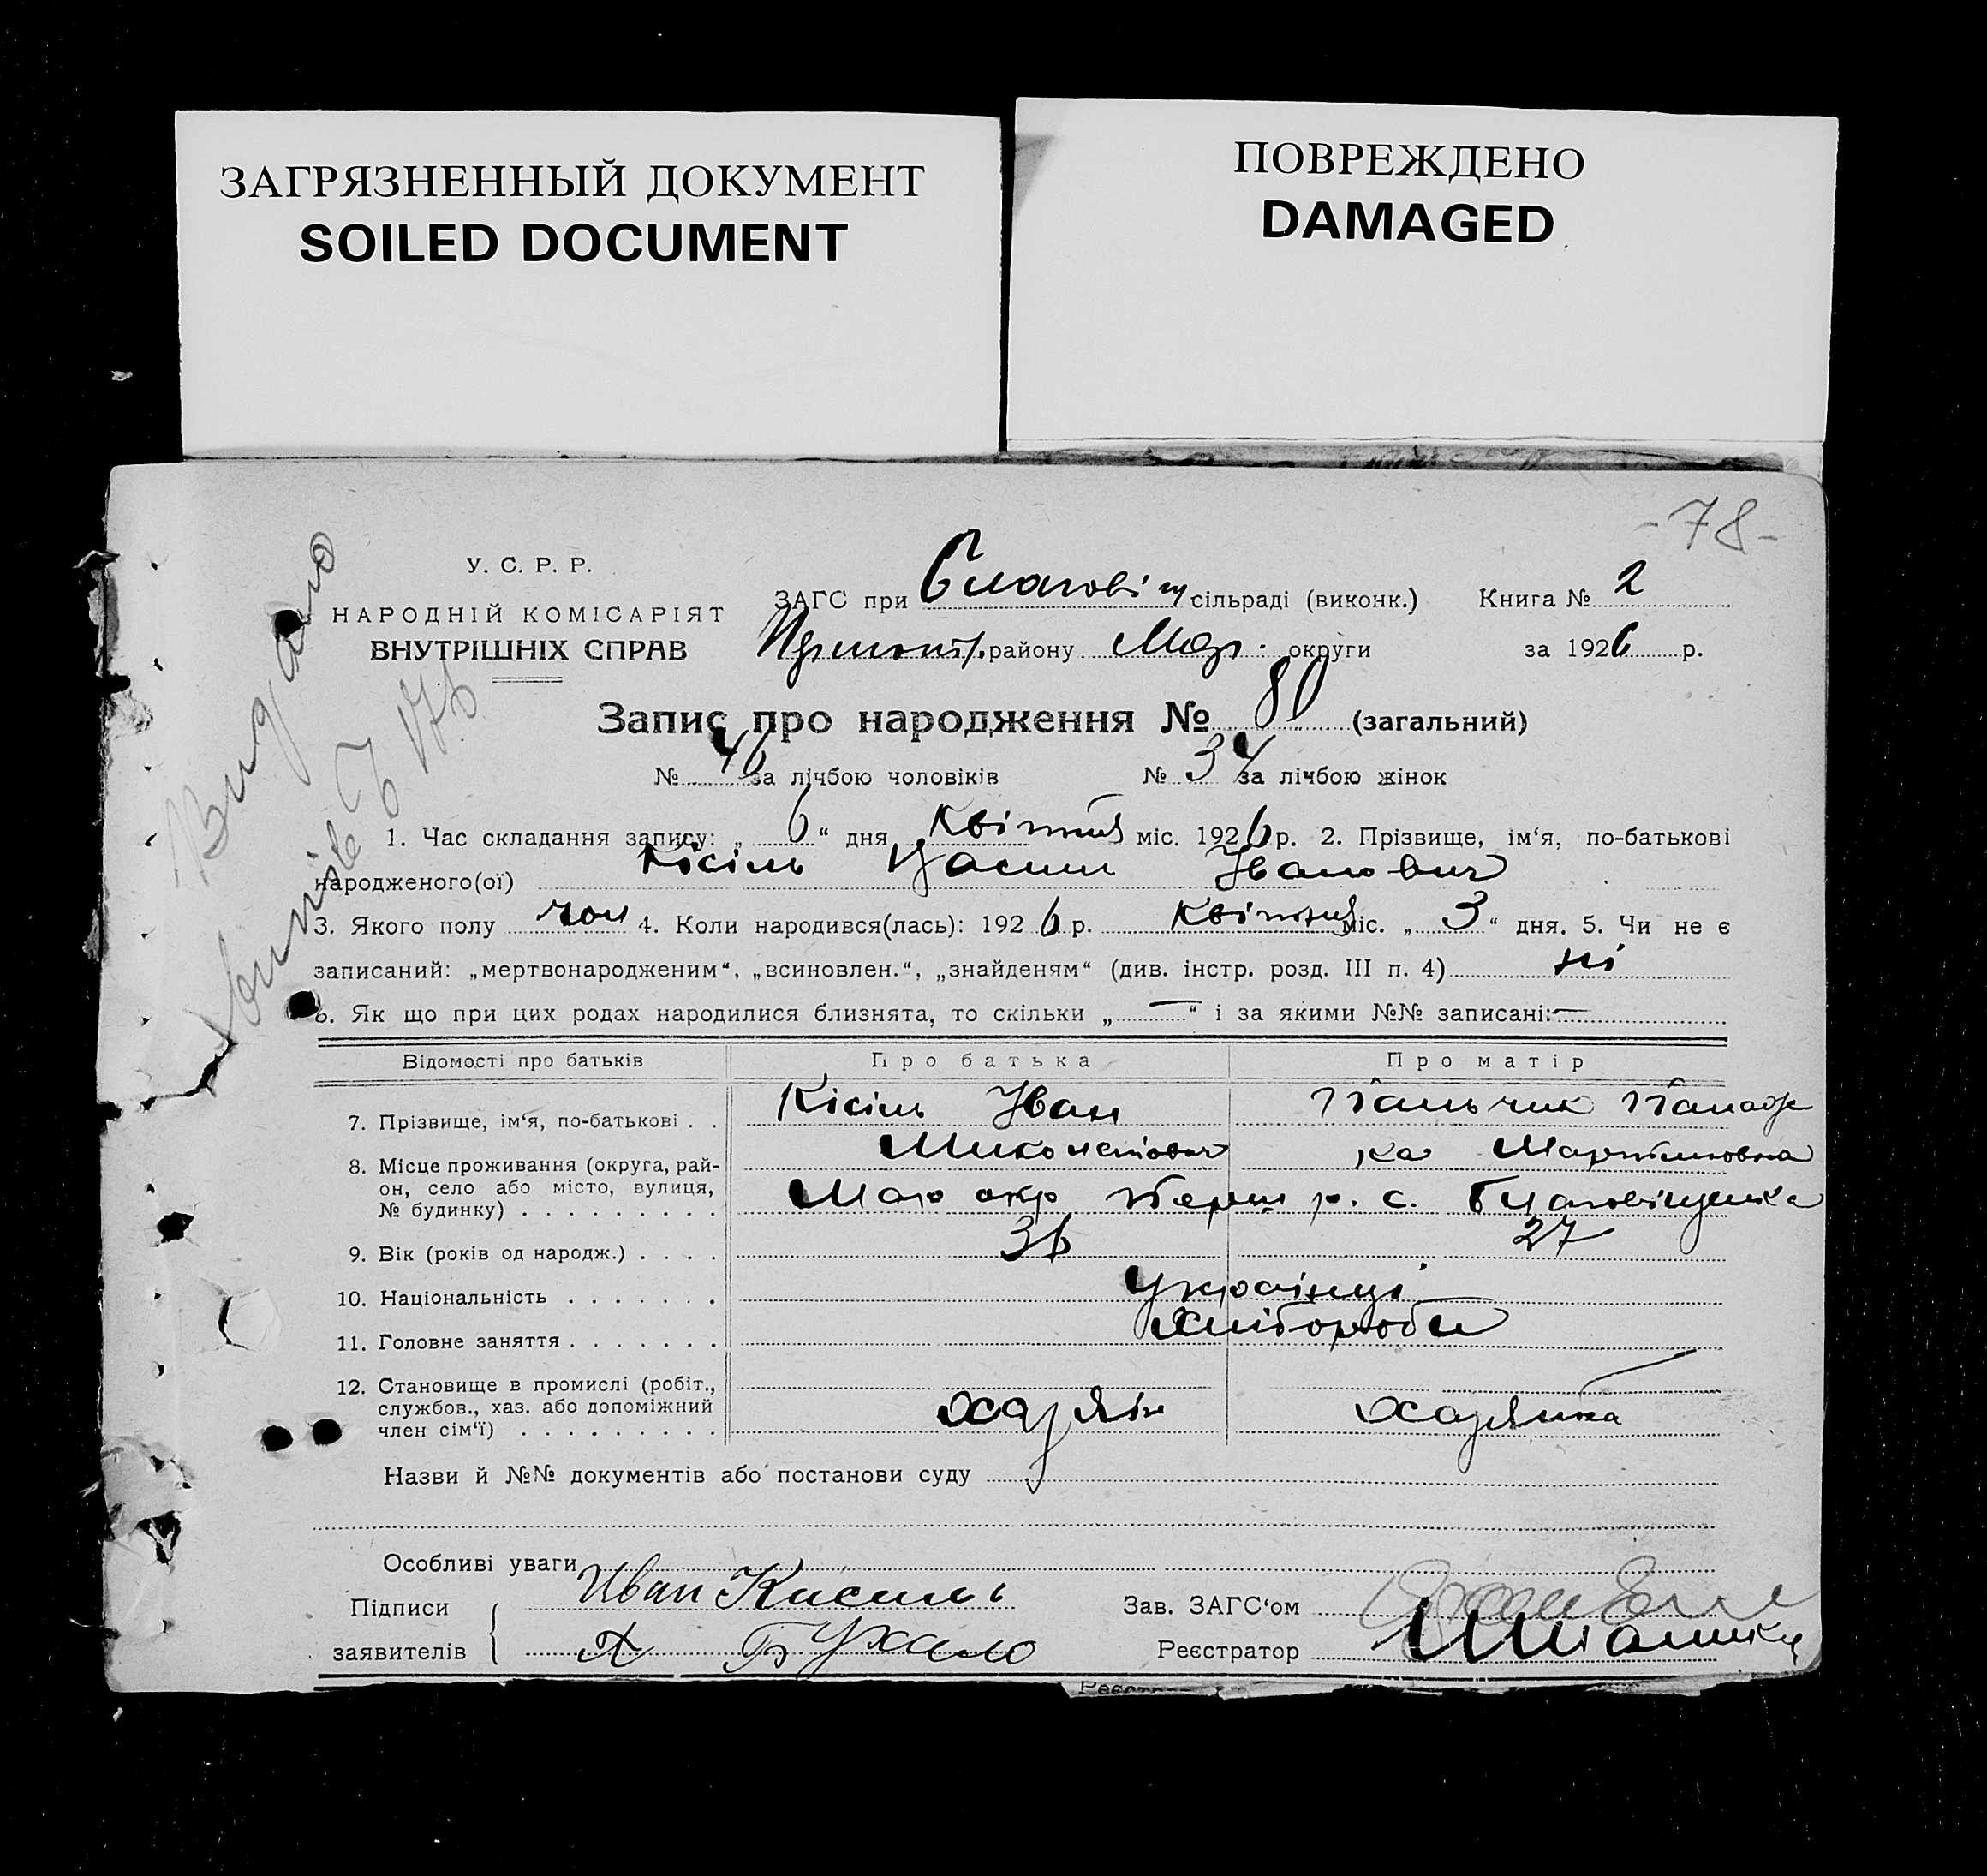 ЗАГРЯЗНЕННЫЙ ДОКУМЕНТ
SOILED DOCUMENT
ПОВРЕЖДЕНО
DAMAGED
-78-
У. С. Р. Р.
НАРОДНІЙ КОМІСАРІЯТ
ВНУТРІШНІХ СПРАВ
ЗАГС при Благовіщ сільраді (виконк.) Книга № 2
району Мар. округи за 1926 р.
Видано
Запис про народження № 80 (загальний)
№ 46 за лічбою чоловіків № 34 за лічбою жінок
1. Час складання запису: „ 6 “ дня Квітня міс. 1926 р. 2. Прізвище, ім‘я, по-батькові
народженого(ої) Кісіль Василь Іванович
3. Якого полу чол 4. Коли народився(лась): 1926 р. Квітня міс. „ 3 “ дня. 5. Чи не є
записаний: „мертвонародженим“, „всиновлен.“, „знайденям“ (див. інстр. розд. III п. 4) ні
6. Як що при цих родах народилися близнята, то скільки „ — “ і за якими №№ записані: —
Відомості про батьків Про батька Про матір
7. Прізвище, ім‘я, по-батькові . . Кісіль Іван Пальчик Палаж
Миколайович ка Мартиновна
8. Місце проживання (округа, рай-
он, село або місто, вулиця,
№ будинку) . . . . . . . . . Мар окр р. с. Благовіщенка
9. Вік (років од народж.) . . . . 36 27
10. Національність . . . . . . . Українці
11. Головне заняття . . . . . . . Хлібороби
12. Становище в промислі (робіт.,
службов., хаз. або допоміжний
член сім‘ї) . . . . . . . . . хазяїн хазяйка
Назви й №№ документів або постанови суду
Особливі уваги
Підписи Иван Кисиль Зав. ЗАГС‘ом
заявителів А Бухало Реєстратор